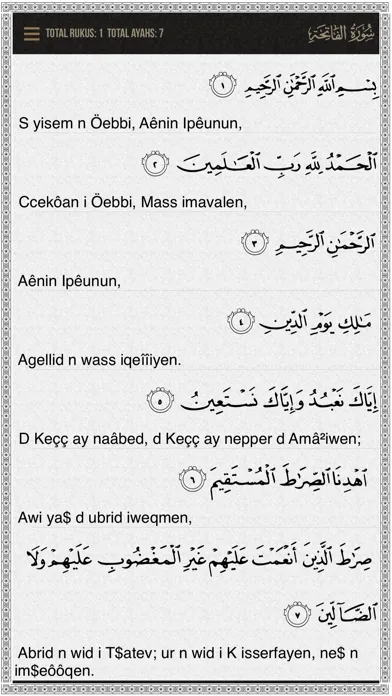 TOTAL RUKUS: 1 TOTAL AYAHS: 7 سُورَةُ الفَاتِحَةِ
بِسْمِ ٱللَّهِ ٱلرَّحْمَٰنِ ٱلرَّحِيمِ ١
S yisem n Öebbi, Aênin Ipêunun,
ٱلْحَمْدُ لِلَّهِ رَبِّ ٱلْعَٰلَمِينَ ٢
Ccekôan i Öebbi, Mass imavalen,
ٱلرَّحْمَٰنِ ٱلرَّحِيمِ ٣
Aênin Ipêunun,
مَٰلِكِ يَوْمِ ٱلدِّينِ ٤
Agellid n wass iqeîîiyen.
إِيَّاكَ نَعْبُدُ وَإِيَّاكَ نَسْتَعِينُ ٥
D Keçç ay naâbed, d Keçç ay nepper d Amâ²iwen;
ٱهْدِنَا ٱلصِّرَٰطَ ٱلْمُسْتَقِيمَ ٦
Awi ya$ d ubrid iweqmen,
صِرَٰطَ ٱلَّذِينَ أَنْعَمْتَ عَلَيْهِمْ غَيْرِ ٱلْمَغْضُوبِ عَلَيْهِمْ وَلَا
ٱلضَّآلِّينَ ٧
Abrid n wid i T$atev; ur n wid i K isserfayen, ne$ n
im$eôôqen.